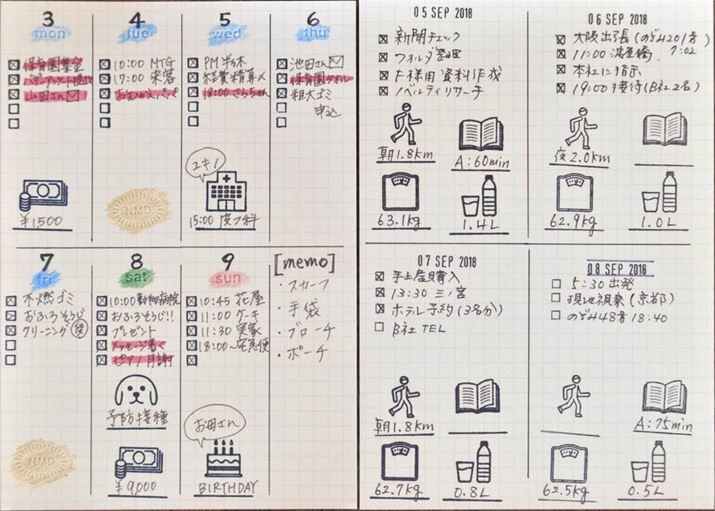 3
mon
保育園集金
山田さん
¥1500
4
tue
10:00 MTG
17:00 来客
おむかえパパ
NMD
5
wed
PM 半休
経費精算〆
18:00 さらちゃん
ユキノ
15:00 皮フ科
6
thu
池田さん
保育園タオル
粗大ゴミ
申込
7
fri
不燃ゴミ
おふろそうじ
クリーニング
NMD
8
sat
10:00 動物病院
おふろそうじ!!
プレゼント
メッセージ書く
ピアノ月謝
予防接種
¥9,000
9
sun
10:45 花屋
11:00 ケーキ
11:30 実家
18:00~宅急便
お母さん
BIRTHDAY
[memo]
・スカーフ
・手袋
・ブローチ
・ポーチ
05 SEP 2018
新聞チェック
フォルダ整理
F様用 資料作成
ノベルティリサーチ
朝1.8km
A:60min
63.1kg
1.4L
06 SEP 2018
大阪出張(のぞみ201号)
7:02
11:00 淀屋橋
本社に指示
19:00 接待(B社2名)
夜2.0km
62.9kg
1.0L
07 SEP 2018
手土産購入
13:30 三ノ宮
ホテル予約(3名分)
B社 TEL
朝1.8km
62.7kg
0.8L
08 SEP 2018
5:30 出発
現地視察(京都)
のぞみ48号 18:40
A:75min
62.5kg
0.5L